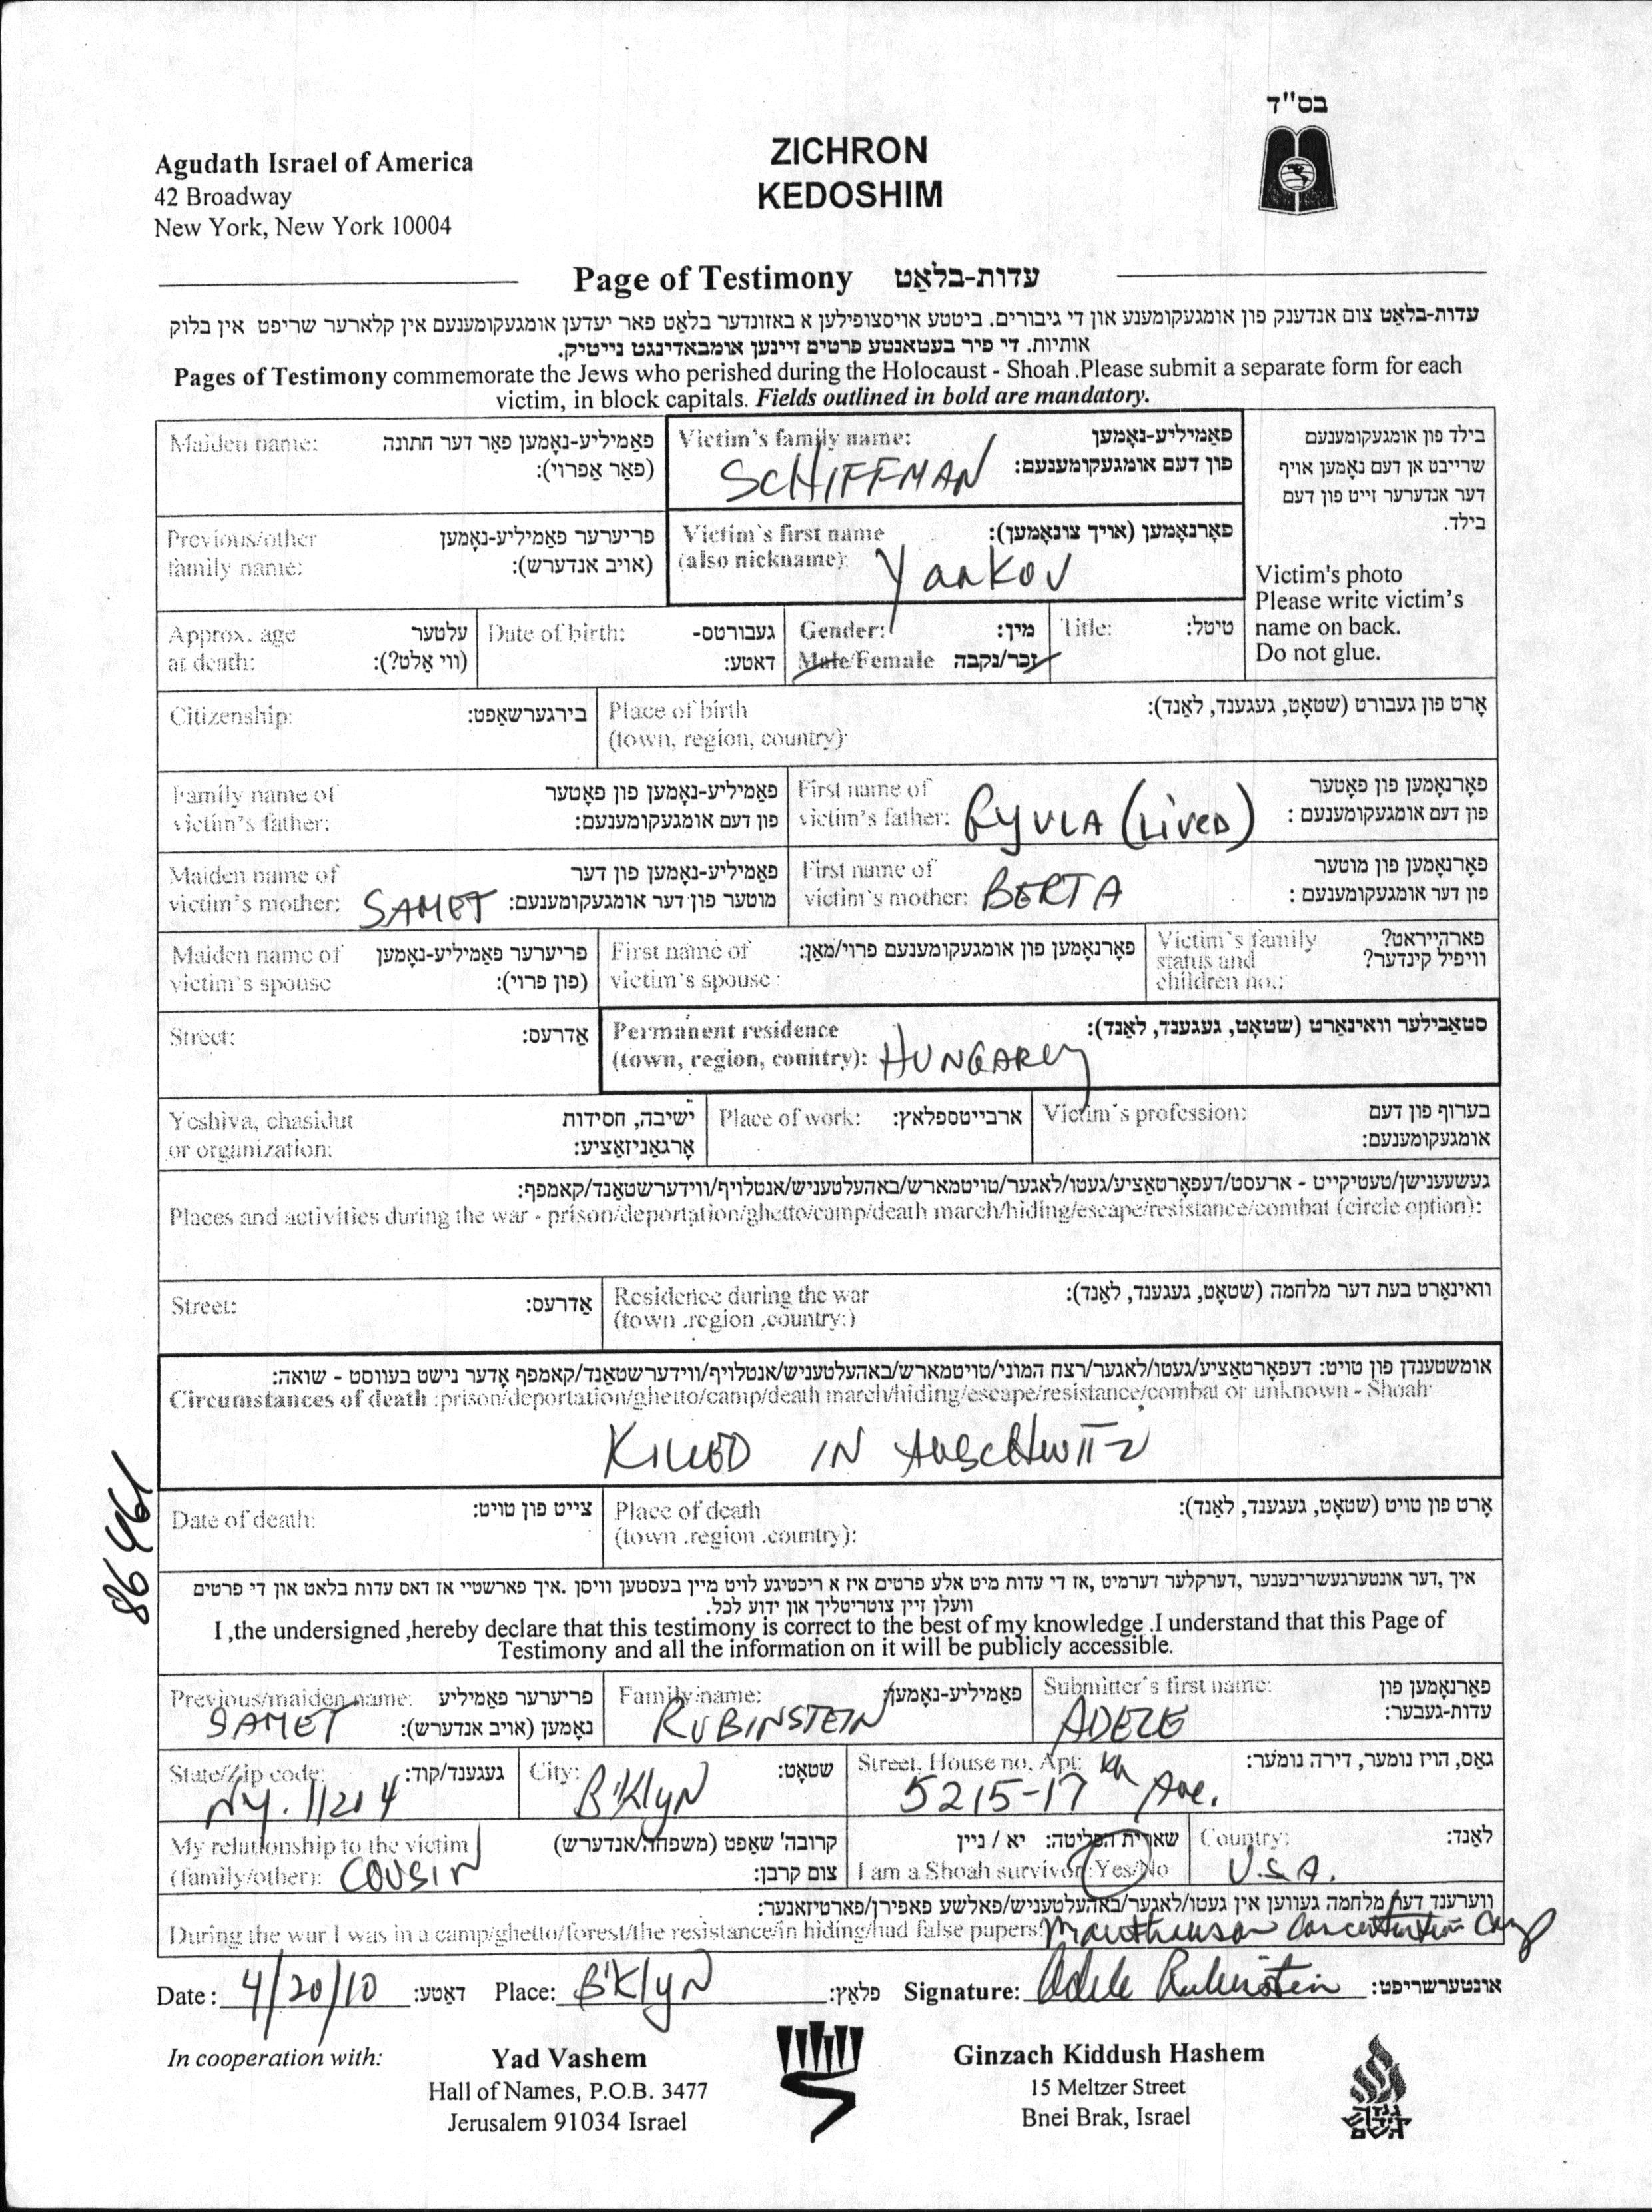 בס"ד
Agudath Israel of America
42 Broadway
New York, New York 10004
ZICHRON
KEDOSHIM
Page of Testimony עדות-בלאַט
עדות-בלאַט צום אנדענק פון אומגעקומענע און די גיבורים. ביטטע אויסצופילען א באזונדער בלאט פאר יעדען אומגעקומענעם אין קלארער שריפט אין בלוק
אותיות. די פיר בעטאנטע פרטים זיינען אומבאדינגט נייטיק.
Pages of Testimony commemorate the Jews who perished during the Holocaust - Shoah .Please submit a separate form for each
victim, in block capitals. Fields outlined in bold are mandatory.
Maiden name: פאַמיליע-נאָמען פאַר דער חתונה
(פאַר אַפרוי):
Victim's family name: פאַמיליע-נאָמען
פון דעם אומגעקומענעם:
SCHIFFMAN
בילד פון אומגעקומענעם
שרייבט אן דעם נאָמען אויף
דער אנדערער זייט פון דעם
בילד.
Victim's photo
Please write victim's
name on back.
Do not glue.
Previous/other פריערער פאַמיליע-נאָמען
family name: (אויב אנדערש):
Victim's first name פאָרנאָמען (אויך צונאָמען):
(also nickname): Yankov
Approx. age עלטער
at death: (ווי אַלט?):
Date of birth: געבורטס-
דאטע:
Gender: מין:
Male/Female זכר/נקבה
Title: טיטל:
Citizenship: בירגערשאַפט:
Place of birth אָרט פון געבורט (שטאָט, געגענד, לאַנד):
(town, region, country):
Family name of פאַמיליע-נאָמען פון פאָטער
victim's father: פון דעם אומגעקומענעם:
First name of פאָרנאָמען פון פאָטער
victim's father: פון דעם אומגעקומענעם :
GYULA (LIVED)
Maiden name of פאַמיליע-נאָמען פון דער
victim's mother: SAMET מוטער פון דער אומגעקומענעם:
First name of פאָרנאָמען פון מוטער
victim's mother: BERTA פון דער אומגעקומענעם :
Maiden name of פריערער פאַמיליע-נאָמען
victim's spouse (פון פרוי):
First name of פאָרנאָמען פון אומגעקומענעם פרוי/מאַן:
victim's spouse :
Victim's family פארהייראט?
status and וויפיל קינדער?
children no.:
Street: אַדרעס:
Permanent residence סטאַבילער וואינאָרט (שטאָט, געגענד, לאַנד):
(town, region, country): HUNGARY
Yeshiva, chasidut ישיבה, חסידות
or organization: אָרגאַניזאַציע:
Place of work: ארבייטספלאץ:
Victim's profession: בערוף פון דעם
אומגעקומענעם:
געשעענישן/טעטיקייט - ארעסט/דעפאָרטאַציע/געטו/לאגער/טויטמארש/באהעלטעניש/אנטלויף/ווידערשטאַנד/קאמפף:
Places and activities during the war - prison/deportation/ghetto/camp/death march/hiding/escape/resistance/combat (circle option):
Street: אַדרעס:
Residence during the war וואינאָרט בעת דער מלחמה (שטאָט, געגענד, לאַנד):
(town .region .country:)
אומשטענדן פון טויט: דעפאָרטאַציע/געטו/לאגער/רצח המוני/טויטמארש/באהעלטעניש/אנטלויף/ווידערשטאַנד/קאמפף אָדער נישט בעווסט - שואה:
Circumstances of death :prison/deportation/ghetto/camp/death march/hiding/escape/resistance/combat or unknown - Shoah
KILLED IN AUSCHWITZ
86461
Date of death: צייט פון טויט:
Place of death אָרט פון טויט (שטאָט, געגענד, לאַנד):
(town .region .country):
איך ,דער אונטערגעשריבענער ,דערקלער דערמיט ,אז די עדות מיט אלע פרטים איז א ריכטיגע לויט מיין בעסטען וויסן .איך פארשטיי אז דאס עדות בלאט און די פרטים
וועלן זיין צוטריטליך און ידוע לכל.
I ,the undersigned ,hereby declare that this testimony is correct to the best of my knowledge .I understand that this Page of
Testimony and all the information on it will be publicly accessible.
Previous/maiden name: פריערער פאַמיליע
SAMET נאָמען (אויב אנדערש):
Family name: פאַמיליע-נאָמען
RUBINSTEIN
Submitter's first name: פאָרנאָמען פון
ADELE עדות-געבער:
State/Zip code: געגענד/קוד:
NY. 11204
City: שטאָט:
B'klyN
Street, House no, Apt: גאַס, הויז נומער, דירה נומער:
5215-17th Ave.
My relationship to the victim קרובה' שאַפט (משפחה/אנדערש)
(family/other): COUSIN צום קרבן:
שארית הפליטה: יא / ניין
I am a Shoah survivor: Yes/No
Country: לאַנד:
U.S.A.
ווערענד דער מלחמה געווען אין געטו/לאגער/באהעלטעניש/פאלשע פאפירן/פארטיזאנער:
During the war I was in a camp/ghetto/forest/the resistance/in hiding/had false papers: Mauthausen Concentration Camp
Date: 4/20/10 דאַטע: Place: B'klyN פלאַץ: Signature: Adele Rubinstein אונטערשריפט:
In cooperation with:
Yad Vashem
Hall of Names, P.O.B. 3477
Jerusalem 91034 Israel
Ginzach Kiddush Hashem
15 Meltzer Street
Bnei Brak, Israel
גנזך
קידוש
השם